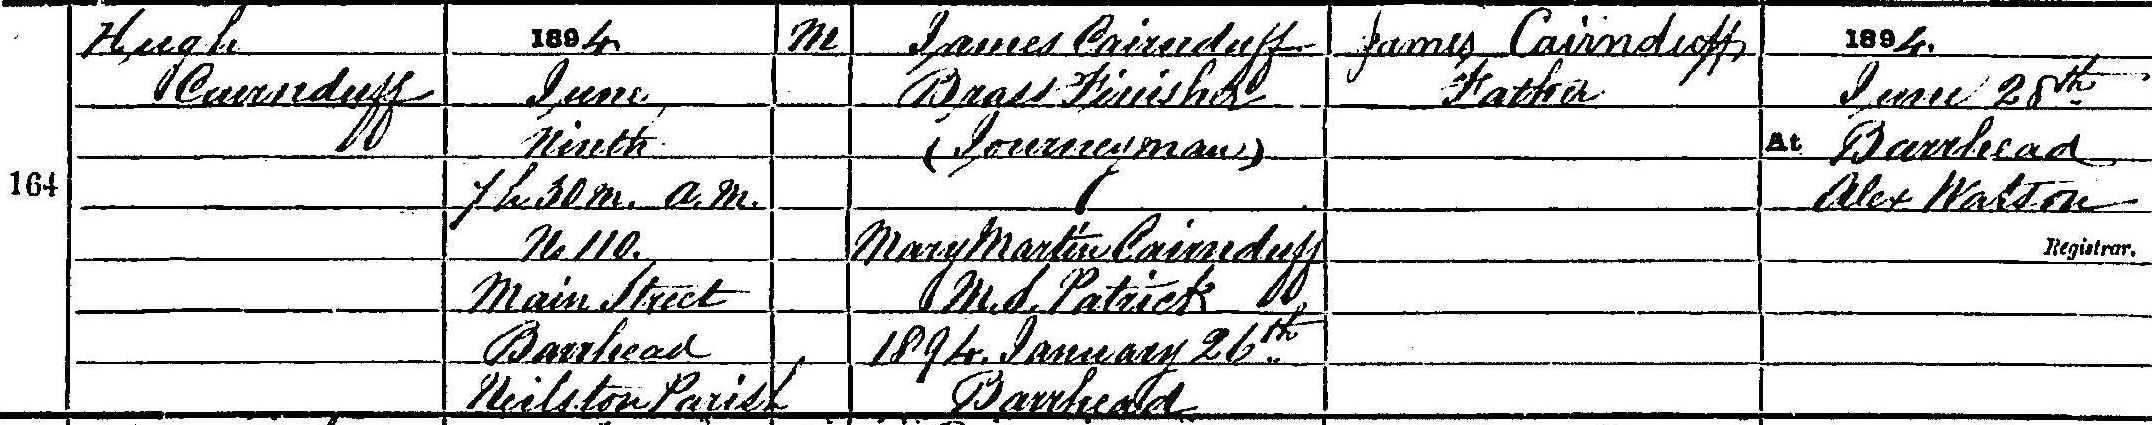 164
Hugh
Cairnduff
1894
June
Ninth
7h 30m. a.m.
No 110.
Main Street
Barrhead
Neilston Parish
M
James Cairnduff
Brass Finisher
(Journeyman)
Mary Martin Cairnduff
M.S. Patrick
1894. January 26th
Barrhead
James Cairnduff
Father
1894.
June 28th
At Barrhead
Alex Watson
Registrar.